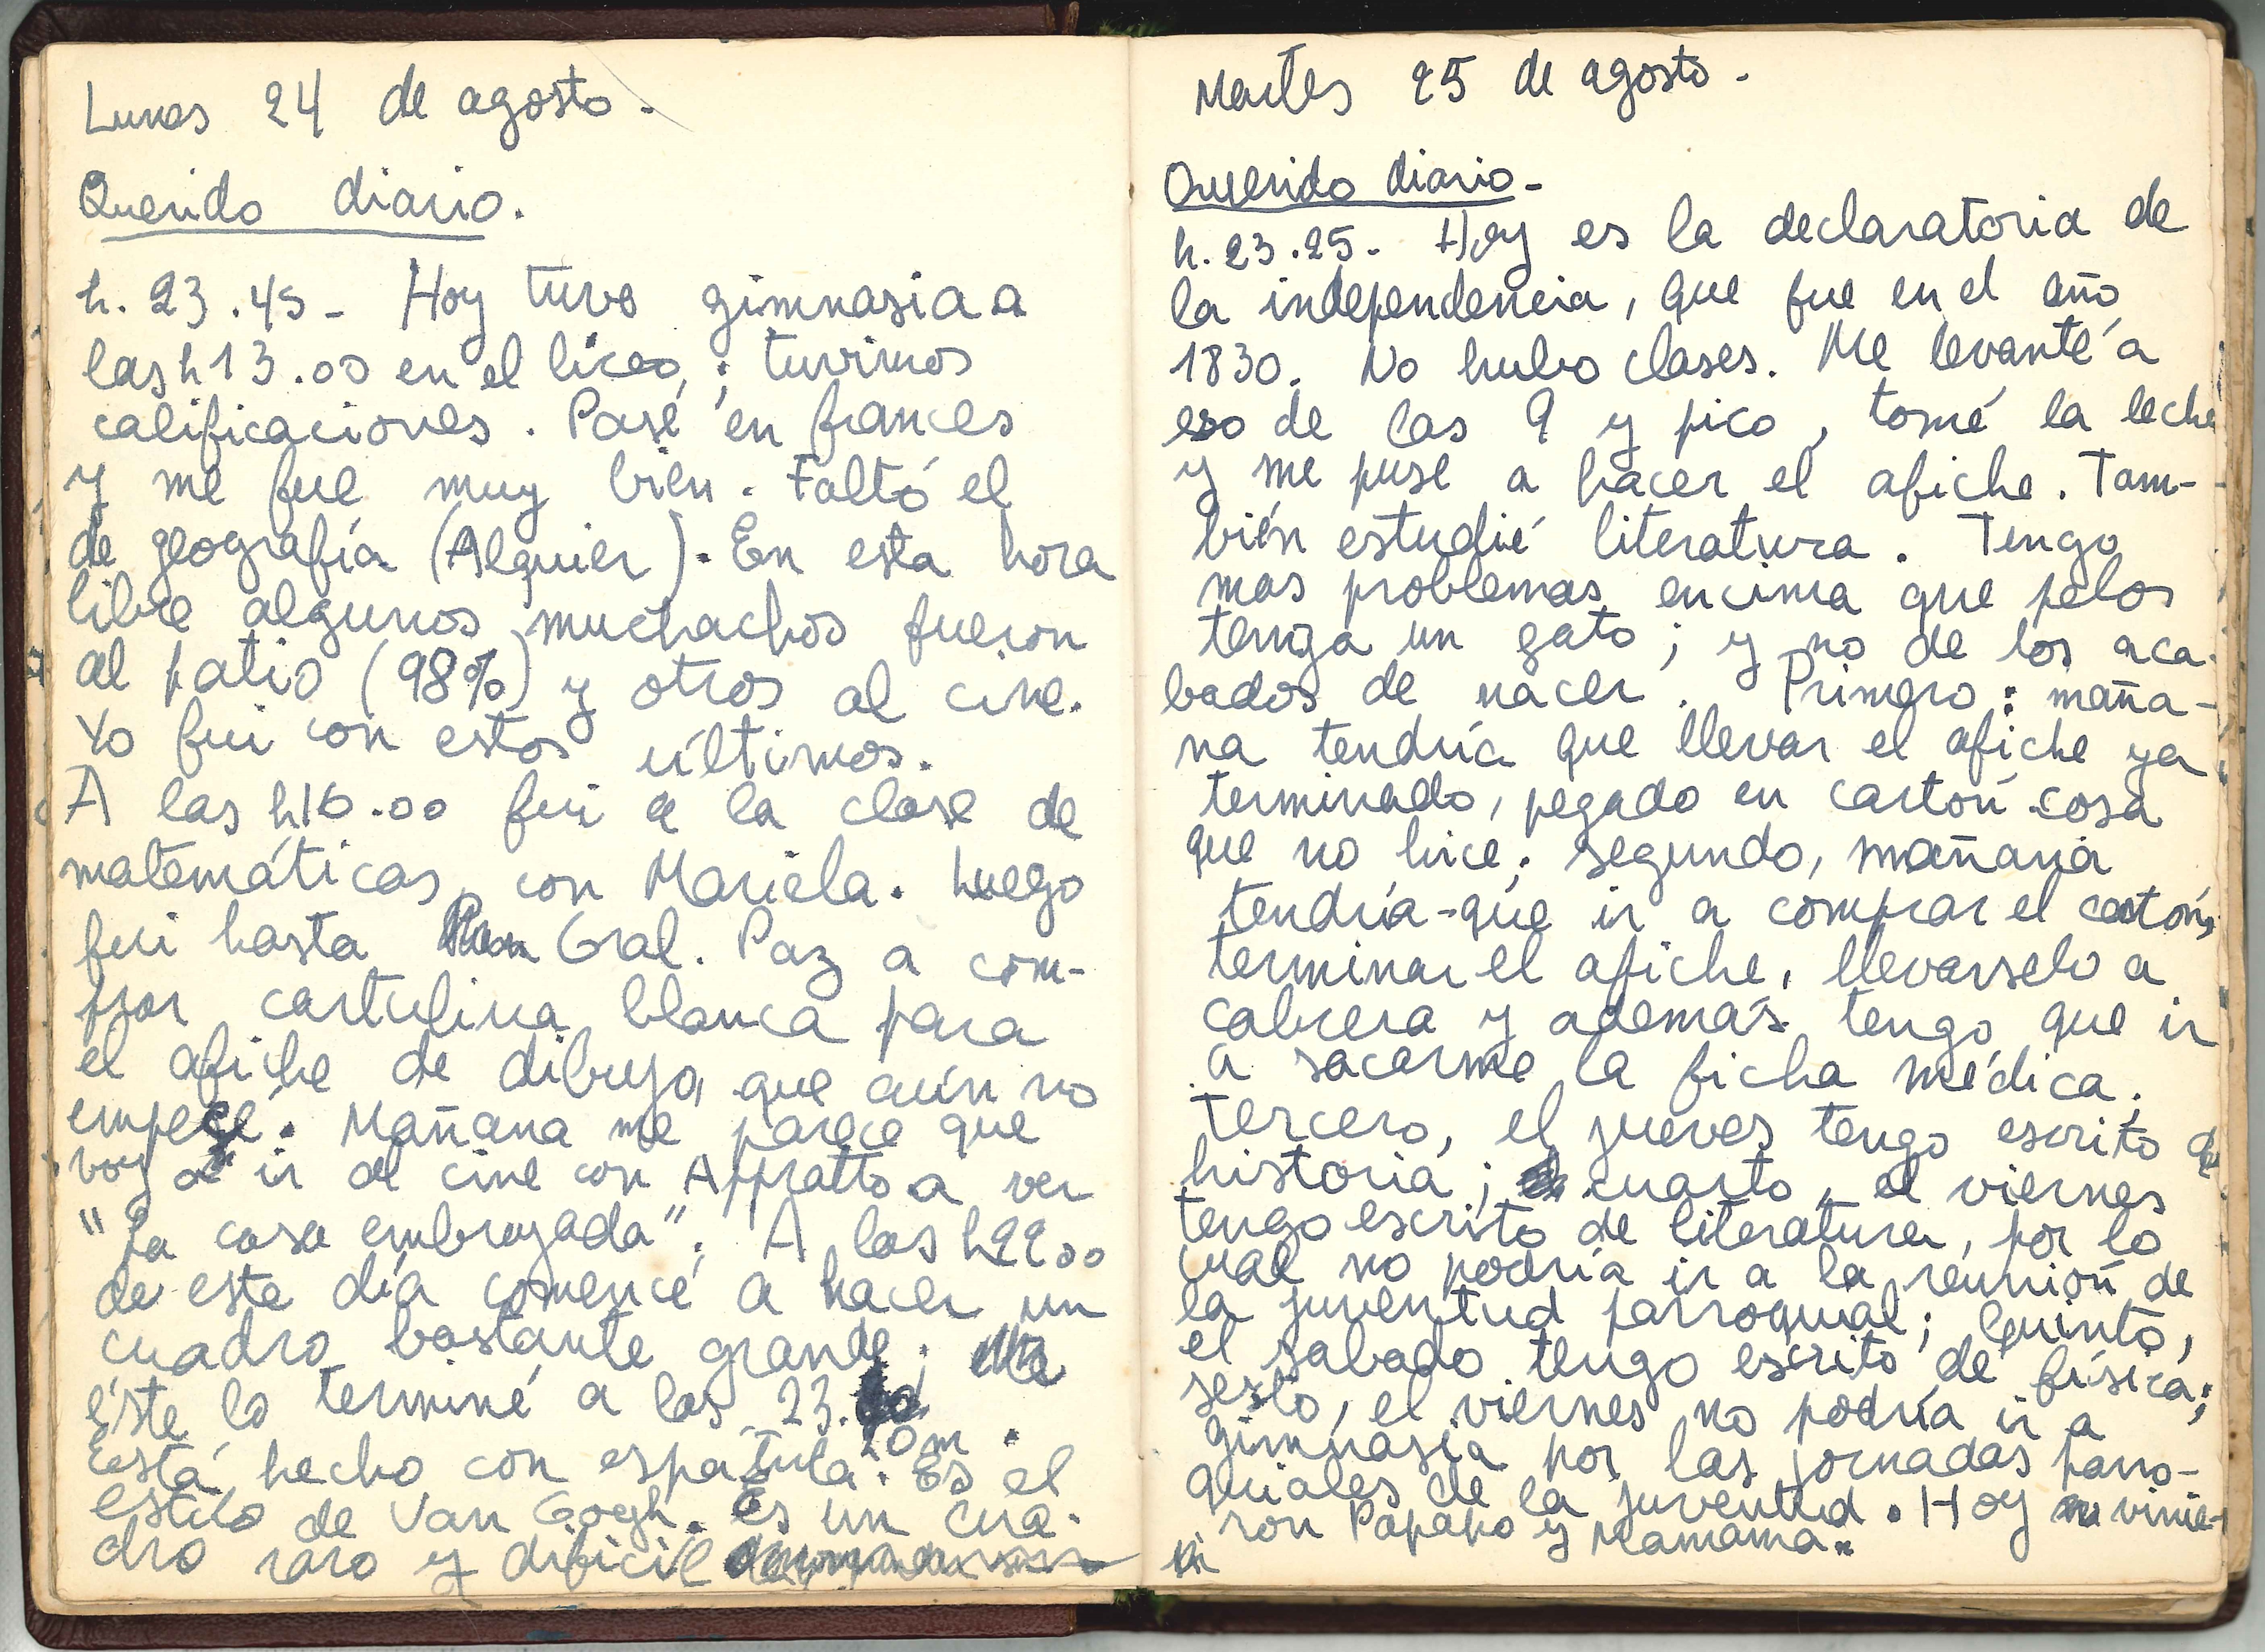 Lunes 24 de agosto.
Querido diario.
h. 23.45 - Hoy tuve gimnasia a
las h 13.00 en el liceo, ; tuvimos
calificaciones. Pasé en frances
y me fue muy bien. Faltó el
de geografía (Alquier). En esta hora
libre algunos muchachos fueron
al patio (98%) y otros al cine.
Yo fui con estos últimos.
A las h16.00 fui a la clase de
matemáticas, con Mariela. Luego
fui hasta Gral. Paz a com-
prar cartulina blanca para
el afiche de dibujo, que aún no
empecé. Mañana me parece que
voy a ir al cine con Appratto a ver
"La casa embrujada". A las h2200
de este día comencé a hacer un
cuadro bastante grande;
éste lo terminé a las 23.
10m.
Está hecho con espátula. Es el
estilo de Van Gogh. Es un cua-
dro raro y dificil
Martes 25 de agosto.
Querido diario-
h. 23.25- Hoy es la declaratoria de
la independencia, que fue en el año
1830. No hubo clases. Me levanté a
eso de las 9 y pico, tomé la leche
y me puse a hacer el afiche. Tam-
bién estudié literatura. Tengo
mas problemas encima que pelos
tenga un gato; y no de los aca-
bados de nacer. Primero: maña-
na tendría que llevar el afiche ya
terminado, pegado en cartón cosa
que no hice; segundo, mañana
tendría-que ir a comprar el cartón,
terminar el afiche, llevarselo a
Cabrera y además tengo que ir
a sacarme la ficha médica;
tercero, el jueves tengo escrito de
historia; cuarto, el viernes
tengo escrito de literatura, por lo
cual no podría ir a la reunión de
la juventud parroquial; quinto,
el sabado tengo escrito de física;
sesto, el viernes no podría ir a
gimnasia por las jornadas parro-
quiales de la juventud. Hoy vinie-
ron Papapo y Mamama.